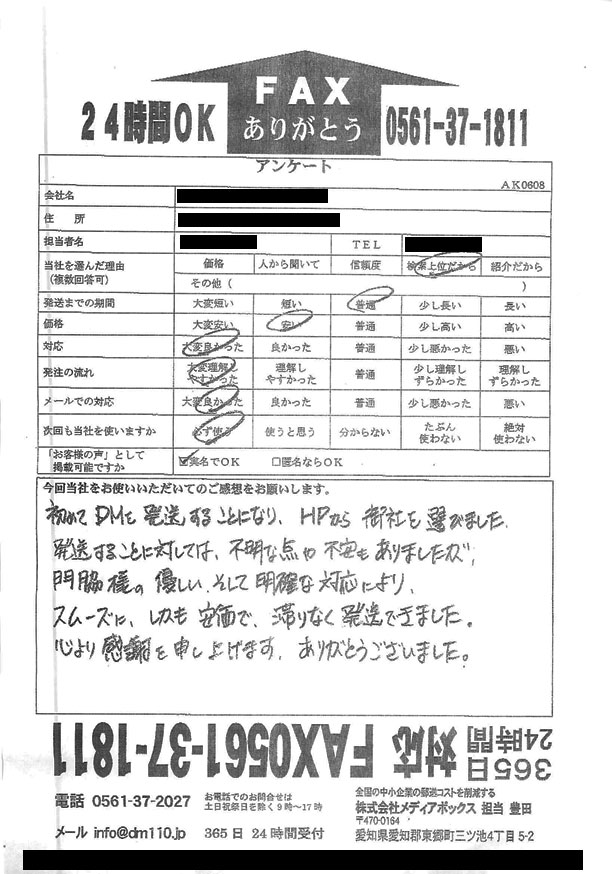 FAX
ありがとう
24時間OK
0561-37-1811
アンケート
AK0608
会社名
住 所
担当者名 TEL
当社を選んだ理由 (複数回答可) 価格 人から聞いて 信頼度 検索上位だから 紹介だから
その他 ( )
発送までの期間 大変短い 短い 普通 少し長い 長い
価格 大変安い 安い 普通 少し高い 高い
対応 大変良かった 良かった 普通 少し悪かった 悪い
発注の流れ 大変理解しやすかった 理解しやすかった 普通 少し理解しずらかった 理解しずらかった
メールでの対応 大変良かった 良かった 普通 少し悪かった 悪い
次回も当社を使いますか 必ず使う 使うと思う 分からない たぶん使わない 絶対使わない
「お客様の声」として掲載可能ですか ☑実名でOK □匿名ならOK
今回当社をお使いいただいてのご感想をお願いします。
初めてDMを発送することになり、HPから御社を選びました。
発送することに対しては、不明な点や不安もありましたが、
門脇様の優しい、そして明確な対応により、
スムーズに、しかも安価で、滞りなく発送できました。
心より感謝を申し上げます。ありがとうございました。
365日 24時間 対応 FAX0561-37-1811
電話 0561-37-2027
お電話でのお問合せは
土日祝祭日を除く9時~17時
メール info@dm110.jp 365日 24時間受付
全国の中小企業の郵送コストを削減する
株式会社メディアボックス 担当 豊田
〒470-0164
愛知県愛知郡東郷町三ツ池4丁目5-2